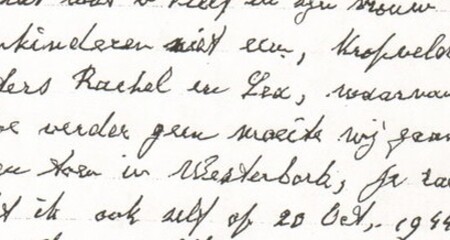 wat in zijn vrouw
kinderen niet een, Kropveld
ders Rachel en Lex, waarvan
verder geen moeite wij gaan
toen in Westerbork, Ja
t ik ook self op 20 Oct, 194